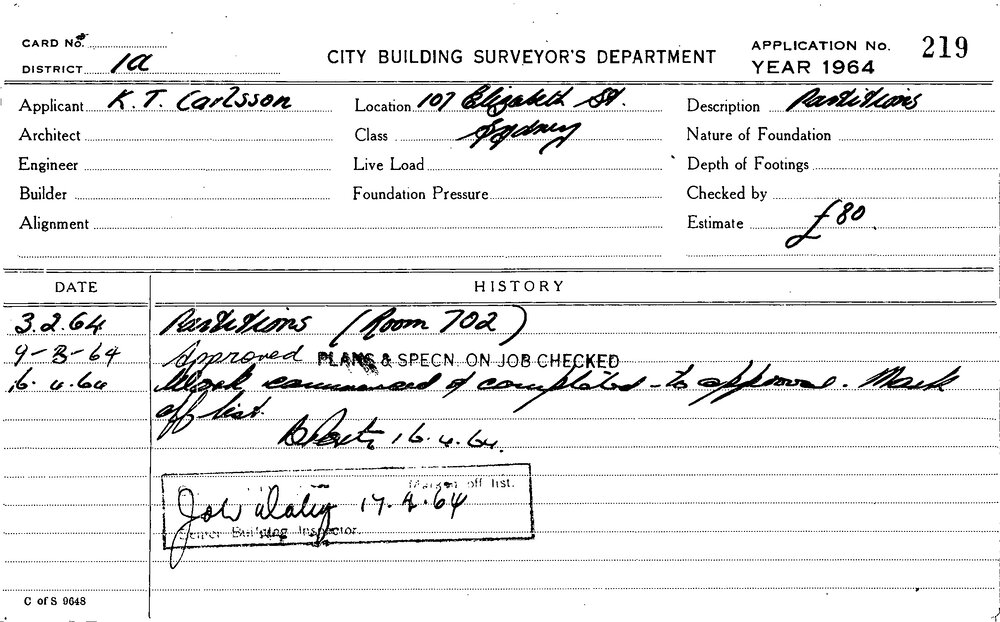 CARD No.
DISTRICT 1a
CITY BUILDING SURVEYOR'S DEPARTMENT
APPLICATION No. 219
YEAR 1964
Applicant K. T. Carlsson
Location 107 Elizabeth St.
Description Partitions
Architect
Class Sydney
Nature of Foundation
Engineer
Live Load
Depth of Footings
Builder
Foundation Pressure
Checked by
Alignment
Estimate £80
DATE HISTORY
3.2.64 Partitions (Room 702)
9-3-64 Approved PLANS & SPECN. ON JOB CHECKED
16.4.64 Work commenced & completed - to approval. Mark
off list.
16.4.64.
Marked off list.
17.4.64
Senior Building Inspector
C of S 9648